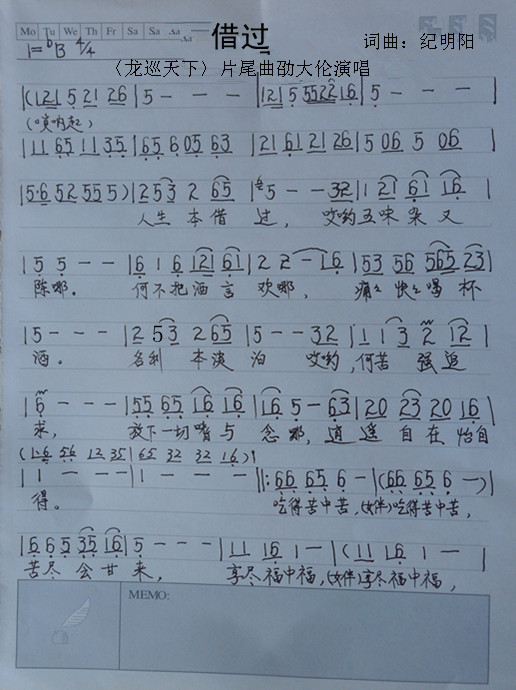 Mo Tu We Th Fr Sa Sa
借过
词曲：纪明阳
1=♭B 4/4
〈龙巡天下〉片尾曲劭大伦演唱
|(121 5 21 26 |5 - - - |121 5 5522 16 |5 - - - |
(唢呐起)
|11 65 11 35 |65 6 05 63 |21 61 21 26 |5 06 5 06 |
|5·6 52 55 5) |2 53 2 65 |5 - - 32 |1 21 61 16 |
人生本借过，哎哟五味杂又
|5 5 - - |6 1 6 121 61 |2 2 - 16 |53 56 565 23 |
陈哪。何不把酒言欢哪，痛々快々喝杯
|5 - - - |2 53 2 65 |5 - - 32 |1 1 3 2 12 |
酒。名利本淡泊哎哟，何苦强迫
|6 - - - |55 65 16 16 |16 5 - 63 |20 23 20 16 |
求，放下一切嗔与念哪，逍遥自在怡自
(1·6 56 12 35 |65 32 32 16)|
|1 - - - |1 - - - ||:66 65 6 - |(66 65 6 -)|
得。吃得苦中苦，(女伴)吃得苦中苦，
|6 6 5 35 16 |5 - - - |11 16 1 - |(11 16 1 - |
苦尽会甘来，享尽福中福，(女伴)享尽福中福，
MEMO: